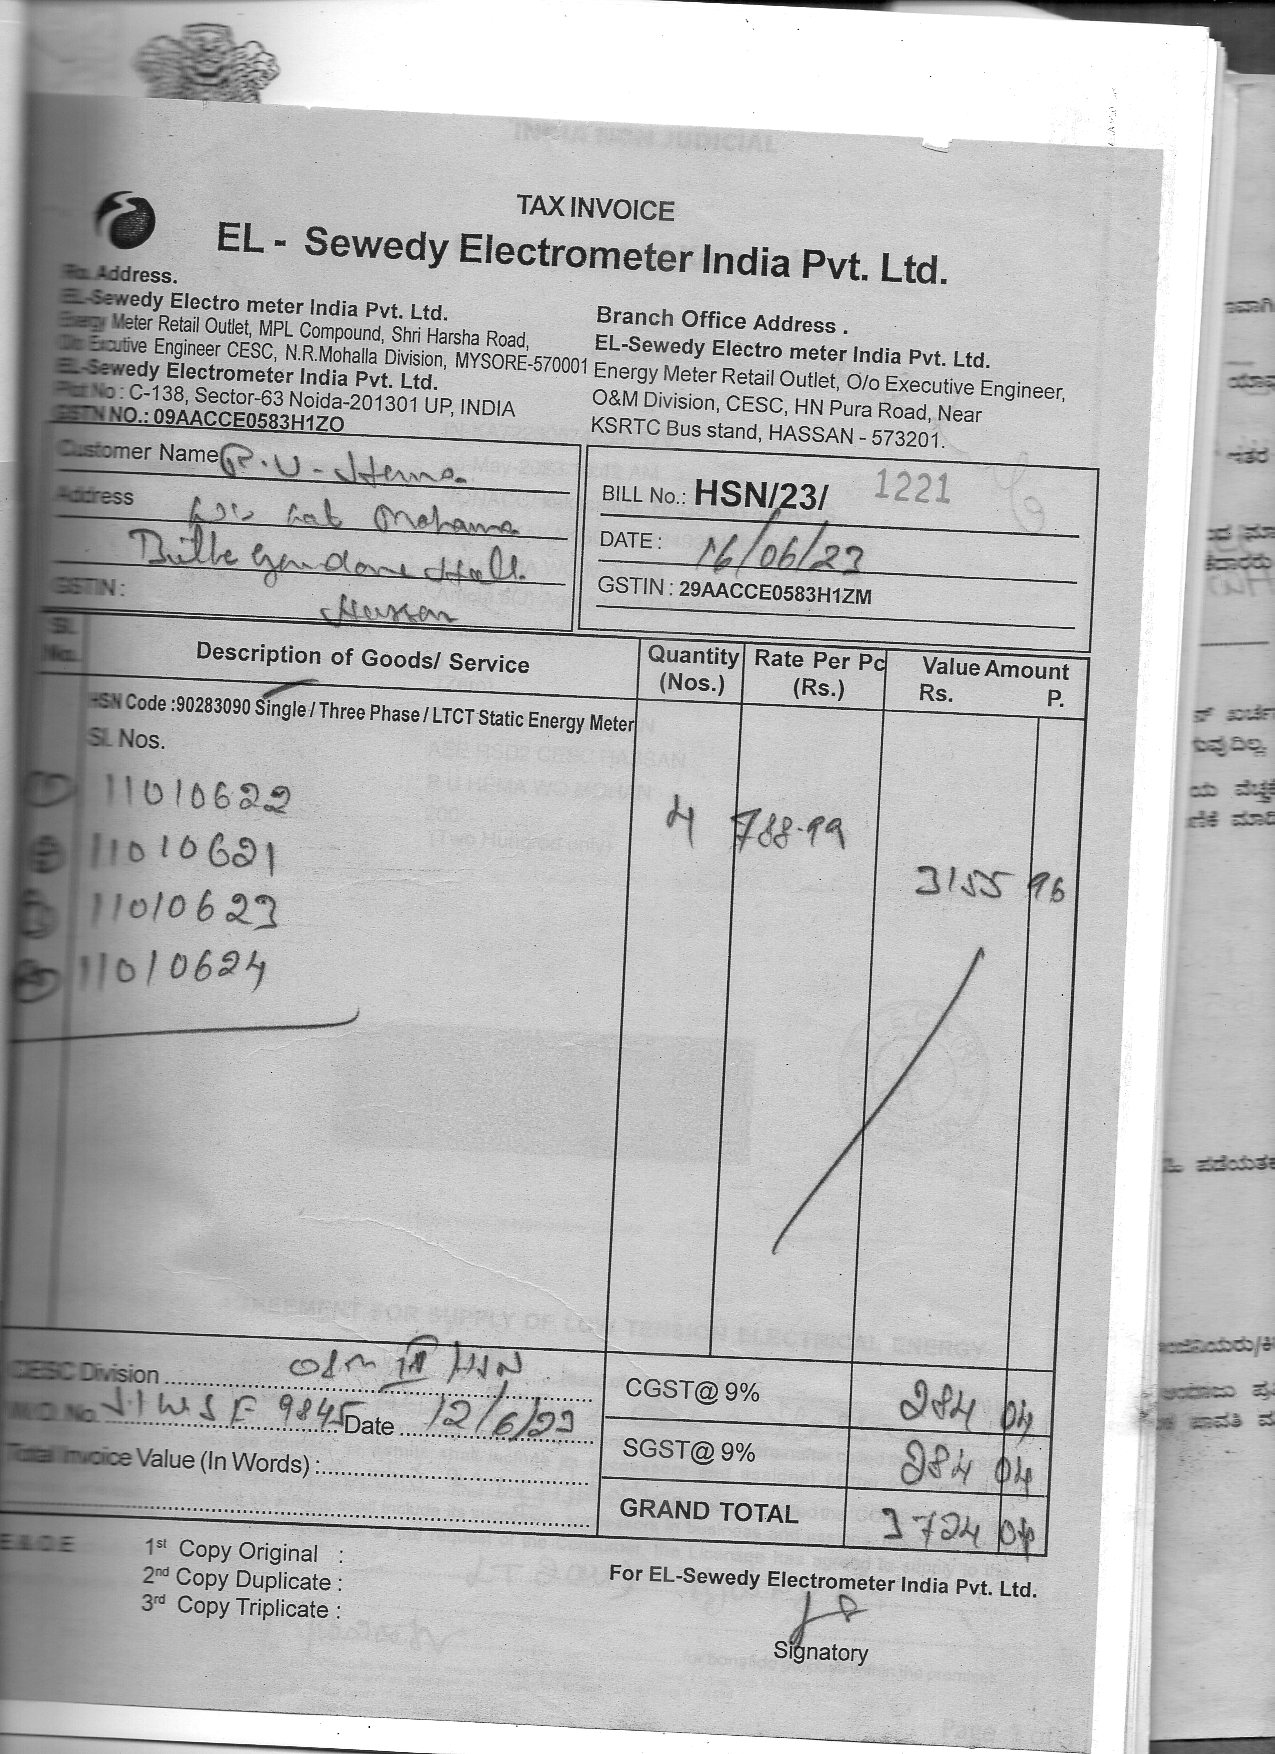 TAX INVOICE
EL - Sewedy Electrometer India Pvt. Ltd.
Address.
EL-Sewedy Electro meter India Pvt. Ltd.
Energy Meter Retail Outlet, MPL Compound, Shri Harsha Road,
Executive Engineer CESC, N.R.Mohalla Division, MYSORE-570001
EL-Sewedy Electrometer India Pvt. Ltd.
Plot No : C-138, Sector-63 Noida-201301 UP, INDIA
GSTN NO.: 09AACCE0583H1ZO
Branch Office Address .
EL-Sewedy Electro meter India Pvt. Ltd.
Energy Meter Retail Outlet, O/o Executive Engineer,
O&M Division, CESC, HN Pura Road, Near
KSRTC Bus stand, HASSAN - 573201.
Customer Name R.U-Hema
Address
GSTIN :
Hassan
BILL No.: HSN/23/ 1221
DATE : 16/06/23
GSTIN : 29AACCE0583H1ZM
Sl. No. Description of Goods/ Service Quantity (Nos.) Rate Per Pc (Rs.) Value Amount Rs. P.
HSN Code :90283090 Single / Three Phase / LTCT Static Energy Meter
Sl. Nos.
① 11010622
② 11010621 4 788.99
③ 11010623 3155 96
④ 11010624
CESC Division HSN
M.O. No. 9845 Date 12/6/23
Total Invoice Value (In Words) :
CGST@ 9% 284 04
SGST@ 9% 284 04
GRAND TOTAL 3724 04
E & O E
1st Copy Original :
2nd Copy Duplicate :
3rd Copy Triplicate :
For EL-Sewedy Electrometer India Pvt. Ltd.
Signatory